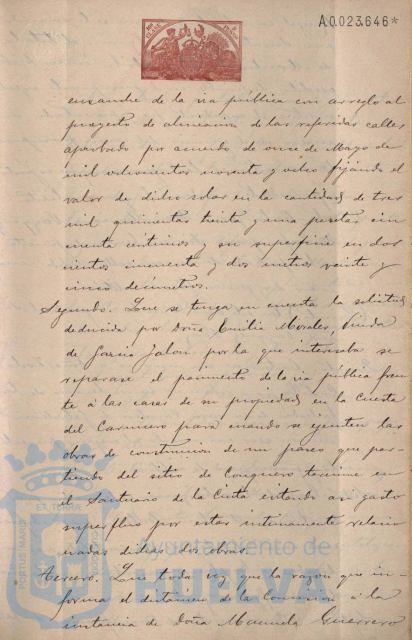 A0.023.646*
ensanche de la via pública con arreglo al
proyecto de alineacion de las referidas calles
aprobado por acuerdo de once de Mayo de
mil ochocientos noventa y ocho fijando el
valor de dicho solar en la cantidad de tres
mil quinientas treinta y una pesetas cin
cuenta centimos y su superficie en dos
cientos cincuenta y dos metros veinte y
cinco decimetros.
Segundo. Que se tenga en cuenta la solicitud
deducida por Doña Emilia Morales, Viuda
de Garcia Jalon por la que interesaba se
reparase el pavimento de la via pública fren
te á las casas de su propiedad en la Cuesta
del Carnicero para cuando se ejecuten las
obras de construccion de un paseo que par-
tiendo del sitio de Conquero termine en
el Santuario de la Cinta estando an gasto
superfluo por estar intimamente relacio
nadas dichas dos obras.
Tercero. Que toda vez que la razon que in-
forma el dictamen de la Comision á la
instancia de Doña Manuela Guerrero
Ayuntamiento de
HUELVA